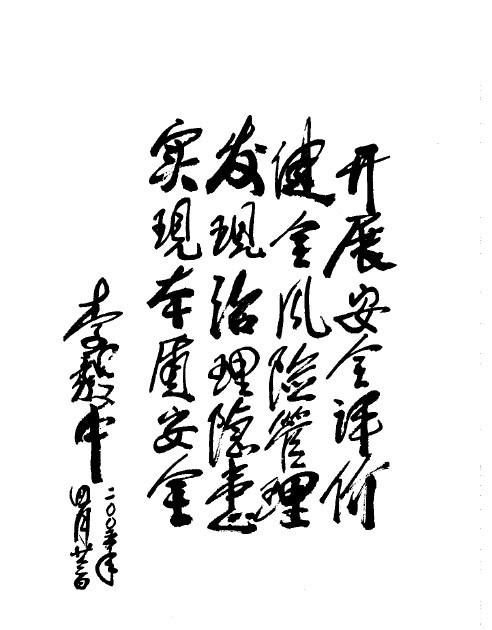 开展安全评价
健全风险管理
发现治理隐患
实现本质安全
李毅中
二〇〇五年
四月廿三日